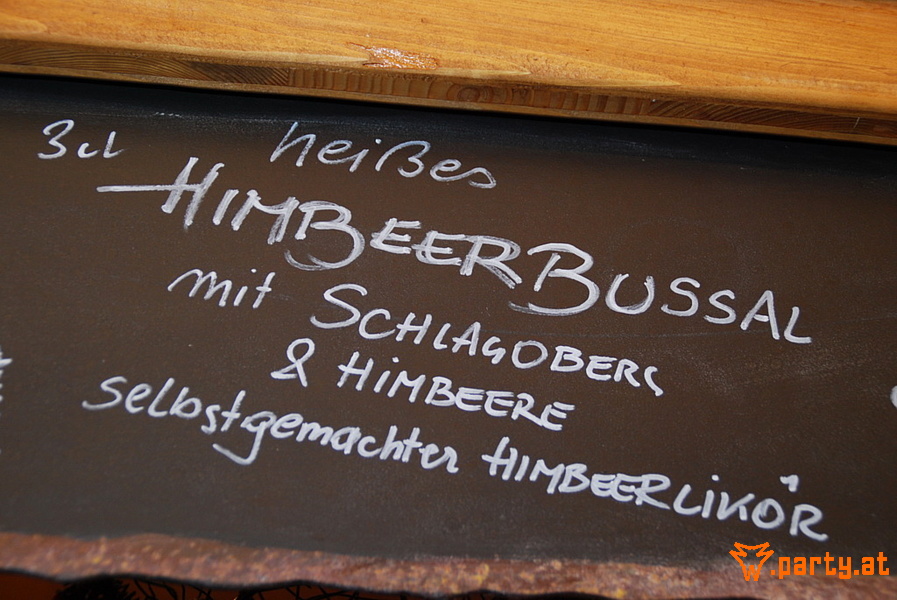 3cl heißes
HIMBEERBUSSAL
mit SCHLAGOBERS
& HIMBEERE
selbstgemachter HIMBEERLIKÖR
W.party.at